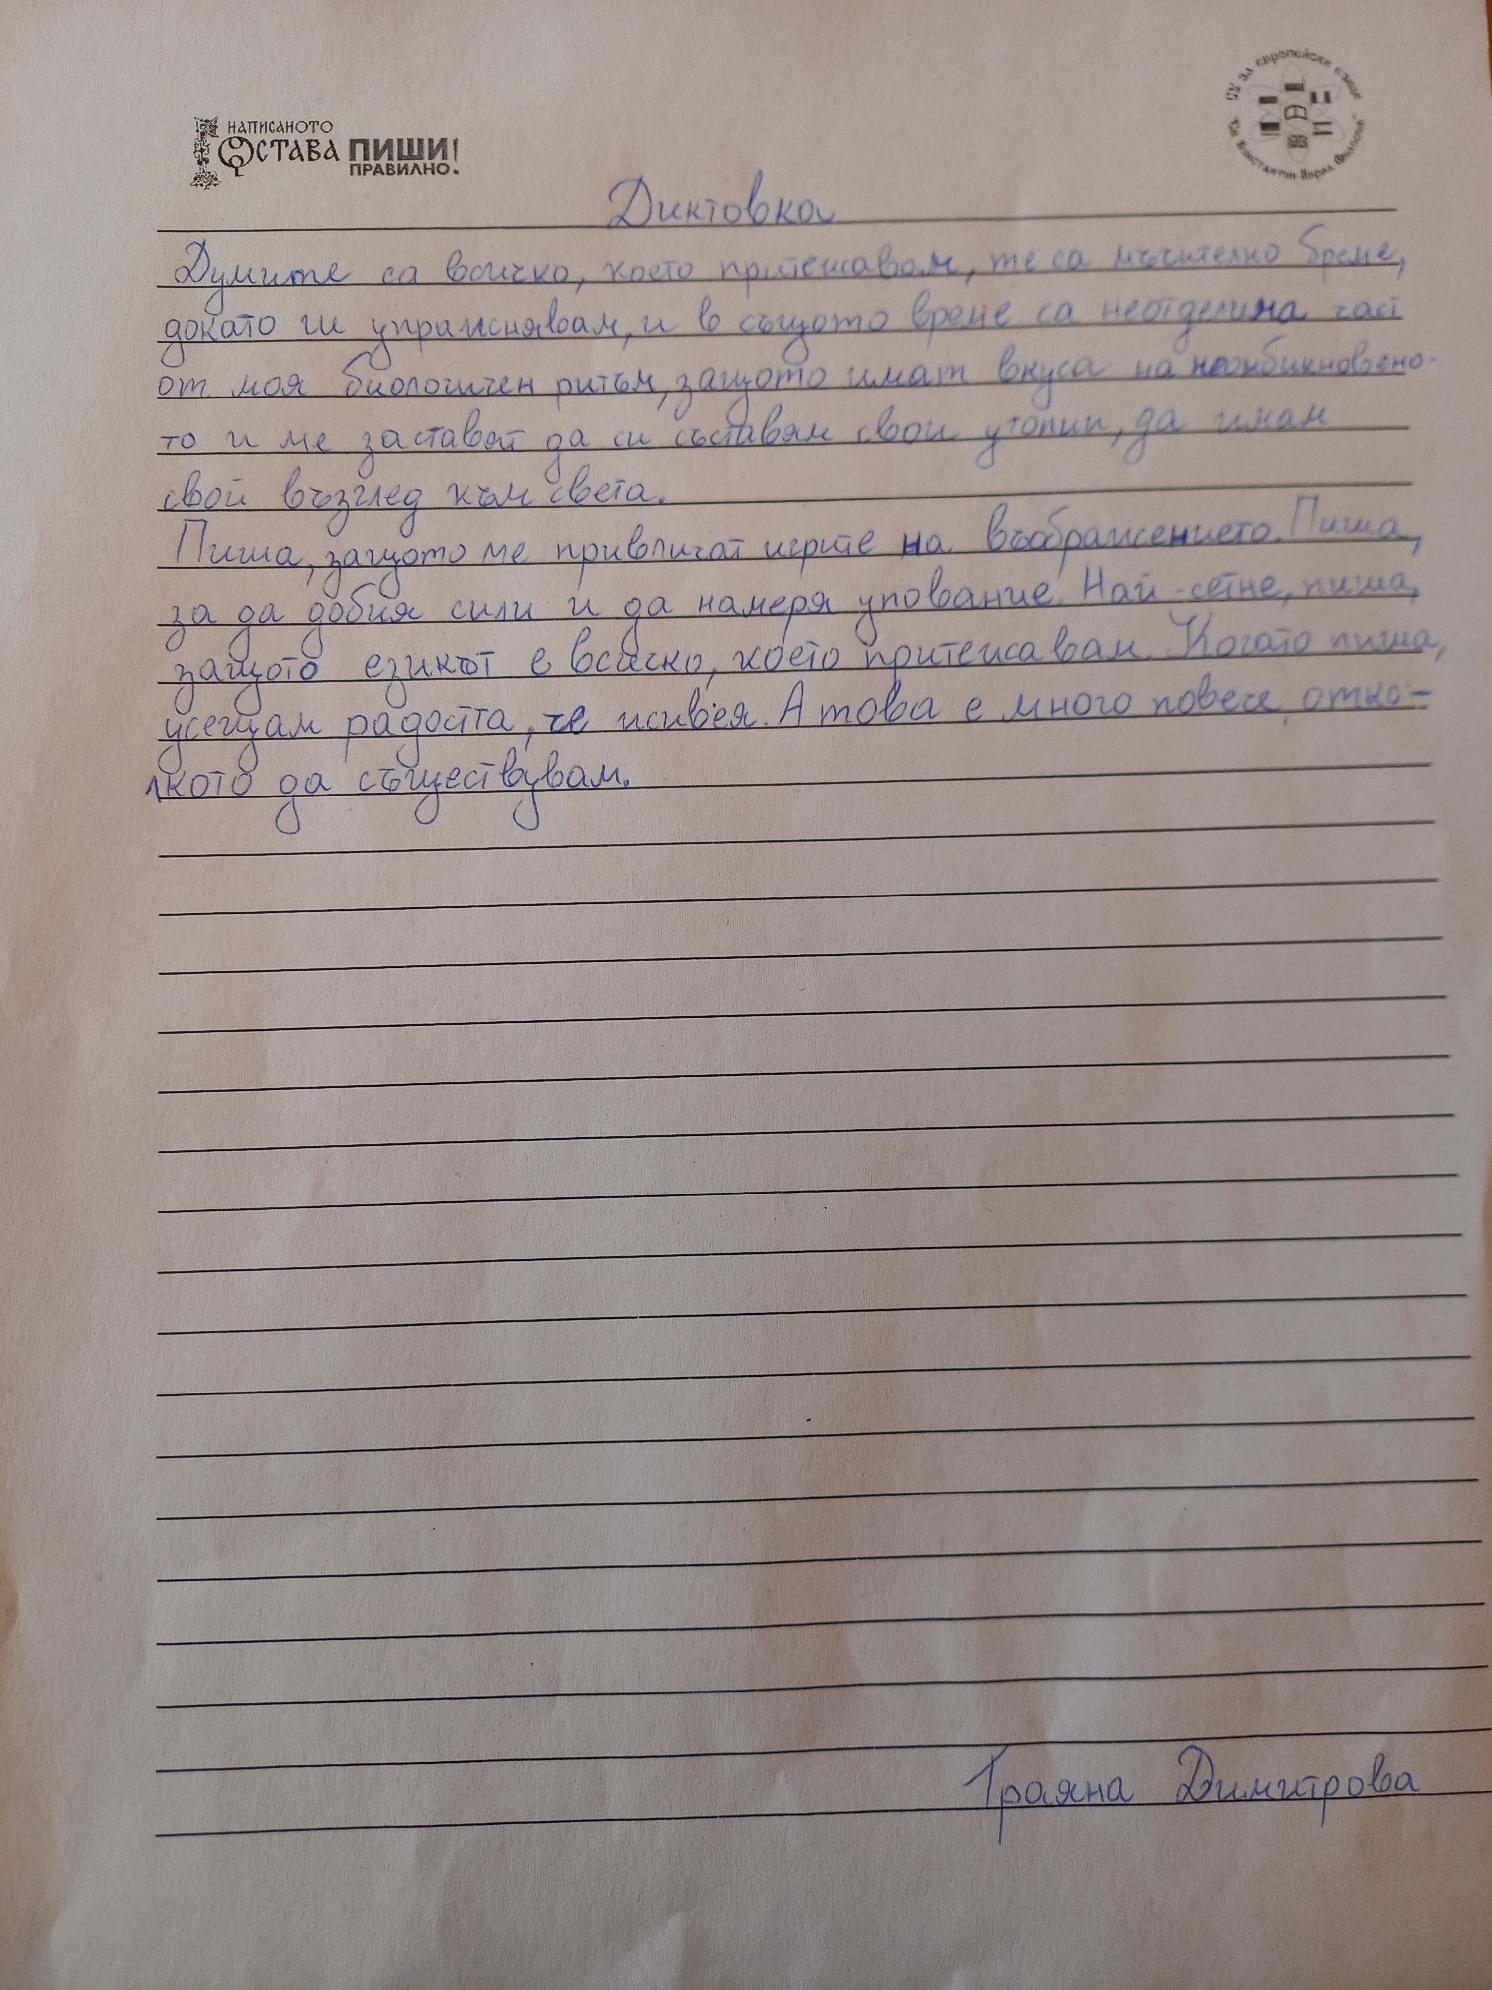 НАПИСАНОТО
ОСТАВА ПИШИ
ПРАВИЛНО!
СУ за европейски езици
"Св. Константин-Кирил Философ"
Диктовка
Думите са всичко, което притежавам, те са мъчително бреме,
докато ги упражнявам, и в същото време са неотделима част
от моя биологичен ритъм, защото имат вкуса на необикновено-
то и ме заставят да си съставям свои утопии, да имам
свой възглед към света.
Пиша, защото ме привличат игрите на въображението. Пиша,
за да добия сили и да намеря упование. Най-сетне, пиша,
защото езикът е всичко, което притежавам. Когато пиша,
усещам радостта, че живея. А това е много повече, отко-
лкото да съществувам.
Траяна Димитрова